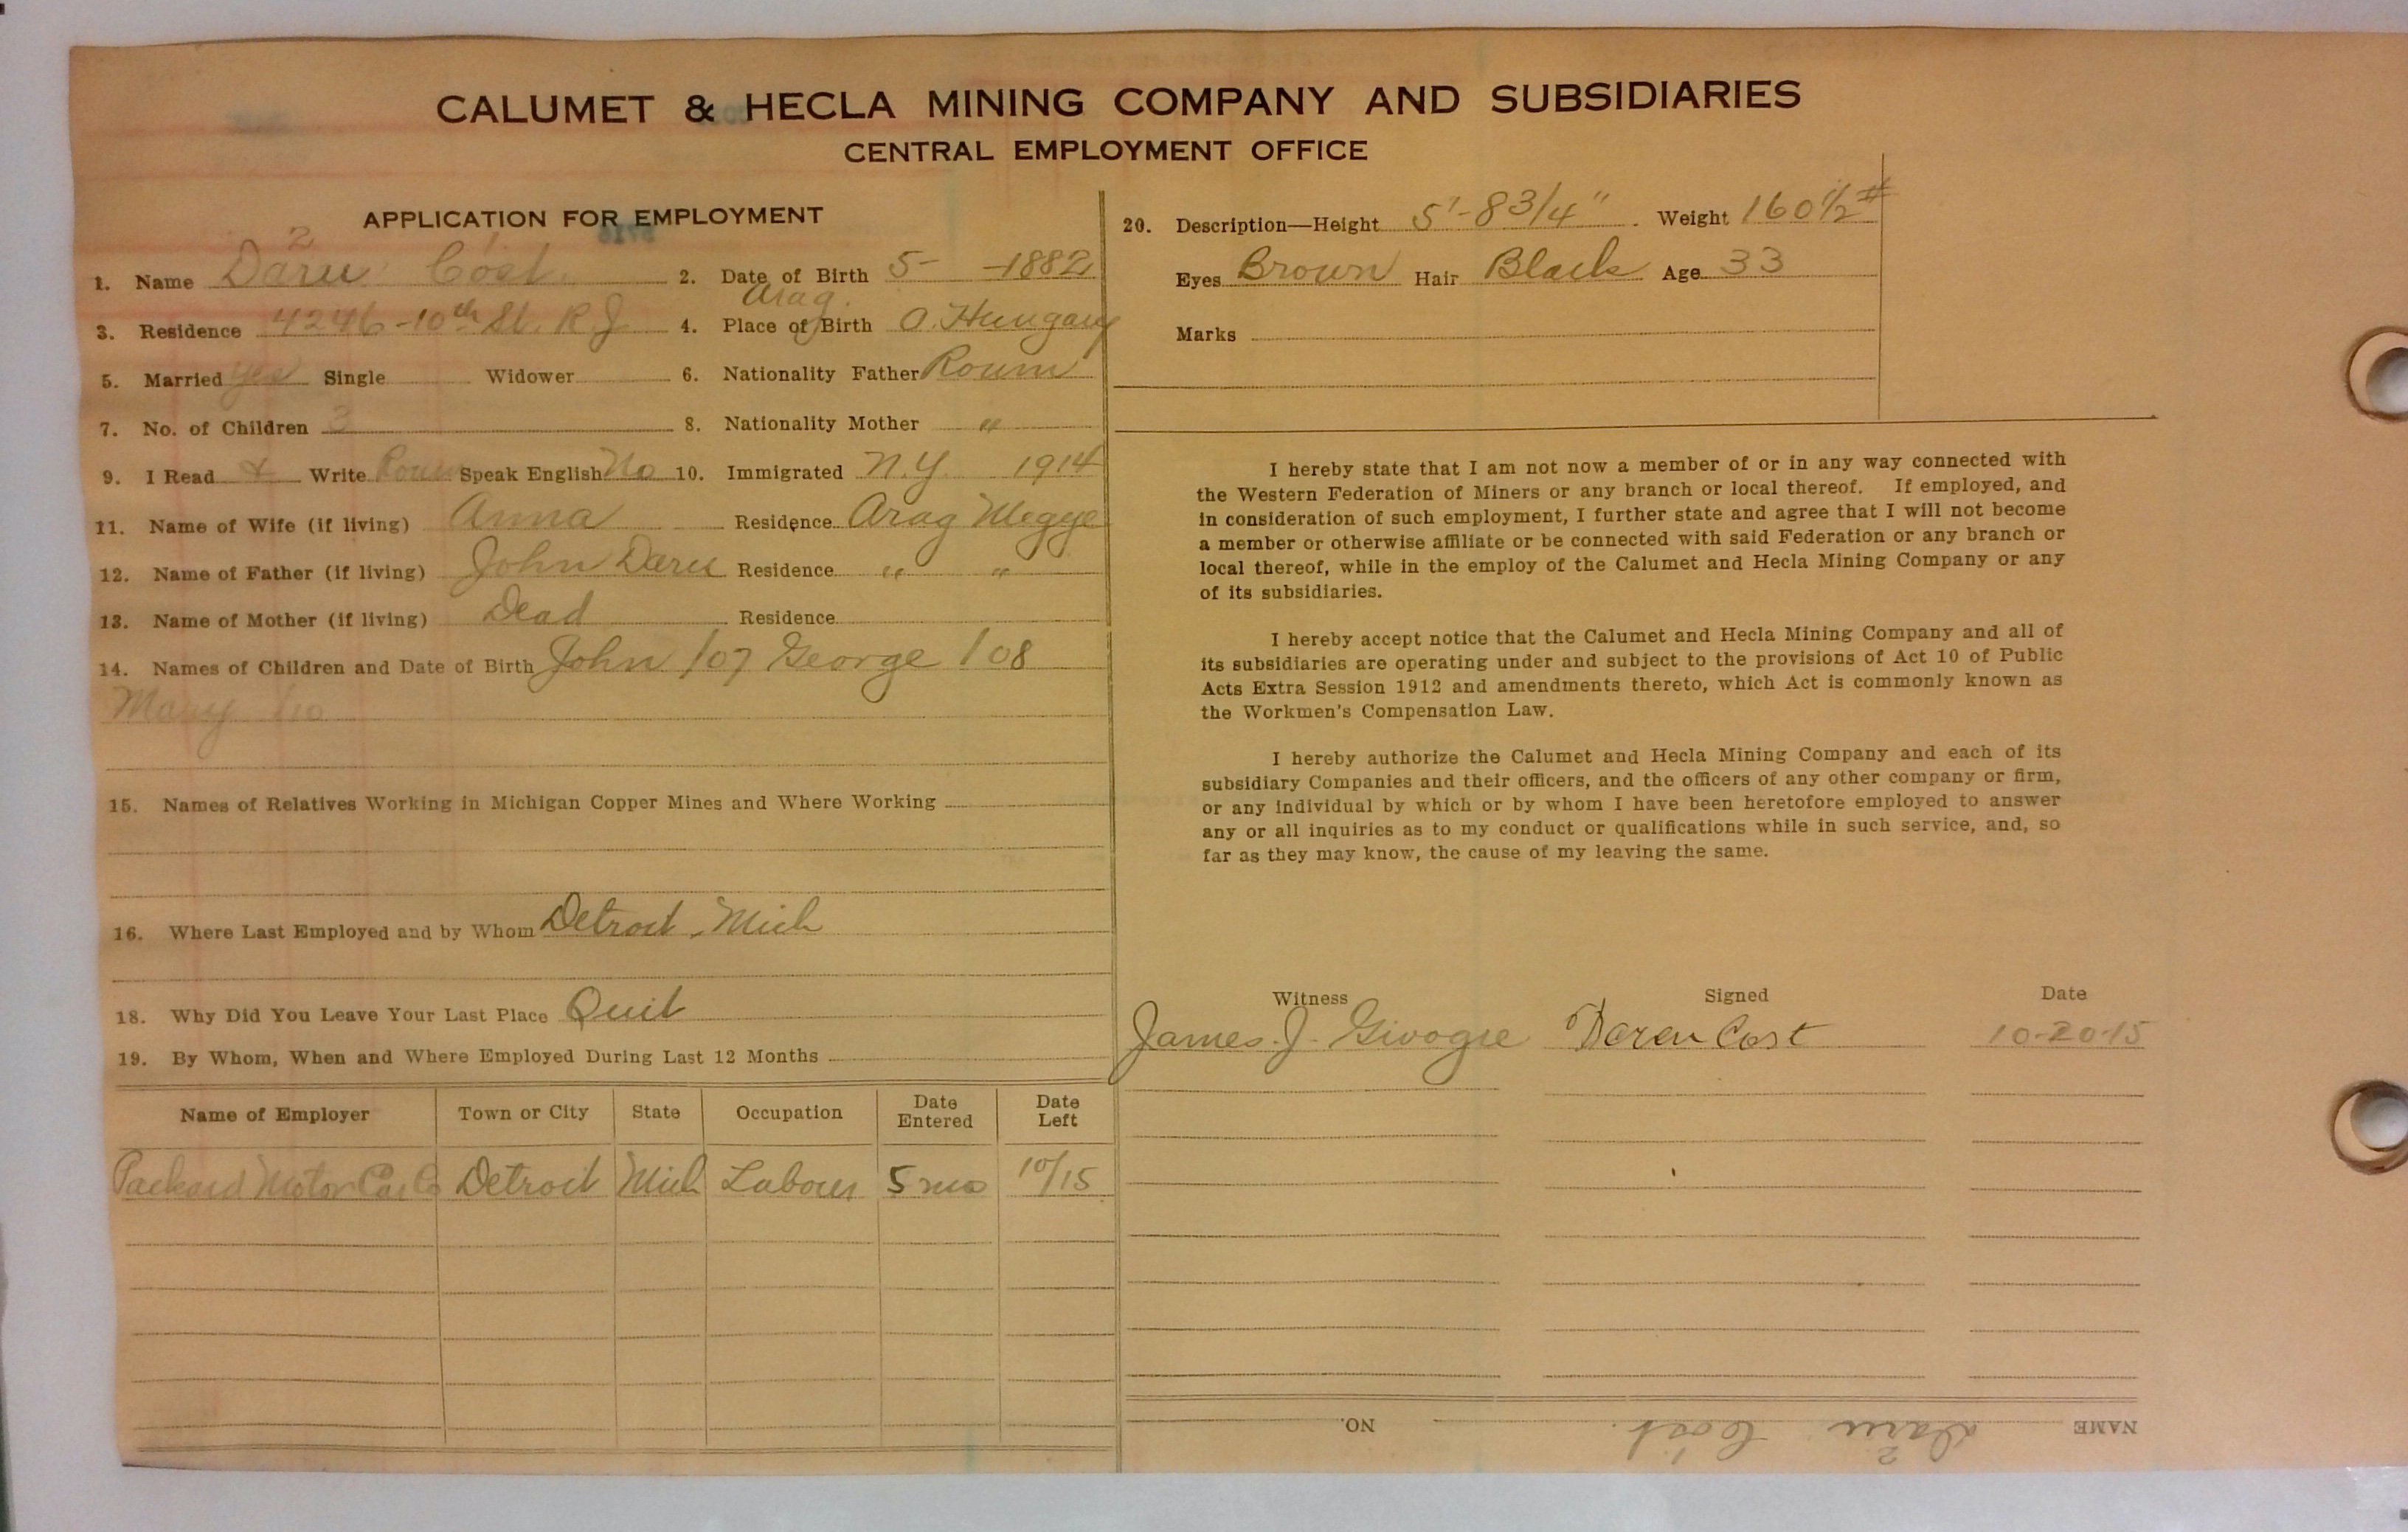 CALUMET & HECLA MINING COMPANY AND SUBSIDIARIES
CENTRAL EMPLOYMENT OFFICE
APPLICATION FOR EMPLOYMENT
2 1
1. Name Daru Cost 2. Date of Birth 5- -1882
Arag.
3. Residence 4246-10th St. R J 4. Place of Birth O. Hungary
5. Married yes Single Widower 6. Nationality Father Roum
7. No. of Children 3 8. Nationality Mother "
9. I Read & Write Roum Speak English No 10. Immigrated N.Y. 1914
11. Name of Wife (if living) Anna Residence Arag Megye
12. Name of Father (if living) John Daru Residence " "
13. Name of Mother (if living) Dead Residence
14. Names of Children and Date of Birth John /07 George /08
Mary /10
15. Names of Relatives Working in Michigan Copper Mines and Where Working
16. Where Last Employed and by Whom Detroit, Mich
18. Why Did You Leave Your Last Place Quit
19. By Whom, When and Where Employed During Last 12 Months
Name of Employer Town or City State Occupation Date Entered Date Left
Packard Motor Car Co Detroit Mich Labour 5 mo 10/15
20. Description—Height 5'-8 3/4" Weight 160 1/2 #
Eyes Brown Hair Black Age 33
Marks
I hereby state that I am not now a member of or in any way connected with
the Western Federation of Miners or any branch or local thereof. If employed, and
in consideration of such employment, I further state and agree that I will not become
a member or otherwise affiliate or be connected with said Federation or any branch or
local thereof, while in the employ of the Calumet and Hecla Mining Company or any
of its subsidiaries.
I hereby accept notice that the Calumet and Hecla Mining Company and all of
its subsidiaries are operating under and subject to the provisions of Act 10 of Public
Acts Extra Session 1912 and amendments thereto, which Act is commonly known as
the Workmen's Compensation Law.
I hereby authorize the Calumet and Hecla Mining Company and each of its
subsidiary Companies and their officers, and the officers of any other company or firm,
or any individual by which or by whom I have been heretofore employed to answer
any or all inquiries as to my conduct or qualifications while in such service, and, so
far as they may know, the cause of my leaving the same.
Witness Signed Date
James. J. Givogie Daru Cost 10-20-15
NAME Daru Cost. NO.
2 1